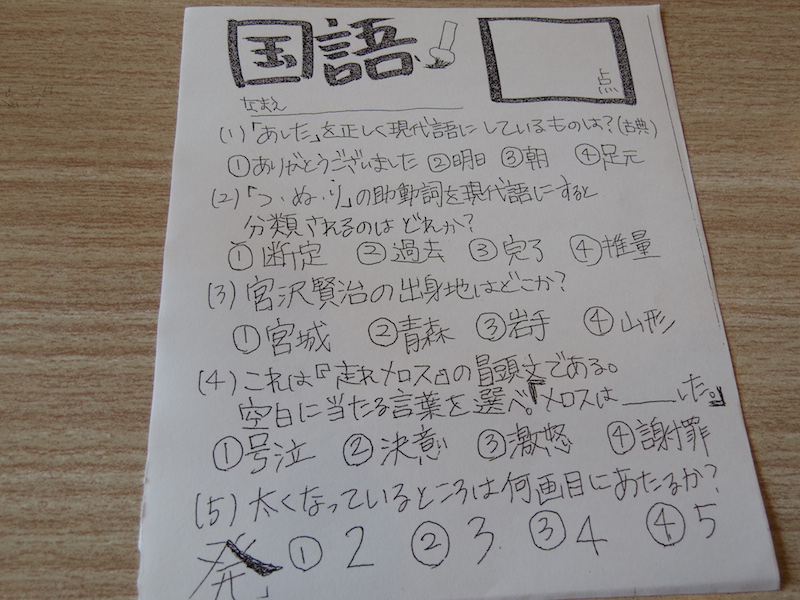 国語
点
なまえ
(1)「あした」を正しく現代語にしているものは?(古典)
①ありがとうございました ②明日 ③朝 ④足元
(2)「つ・ぬ・り」の助動詞を現代語にすると
分類されるのはどれか?
①断定 ②過去 ③完了 ④推量
(3) 宮沢賢治の出身地はどこか?
①宮城 ②青森 ③岩手 ④山形
(4) これは『走れメロス』の冒頭文である。
空白に当たる言葉を選べ。「メロスは____した。」
①号泣 ②決意 ③激怒 ④謝罪
(5) 太くなっているところは何画目にあたるか?
発 ①2 ②3 ③4 ④5